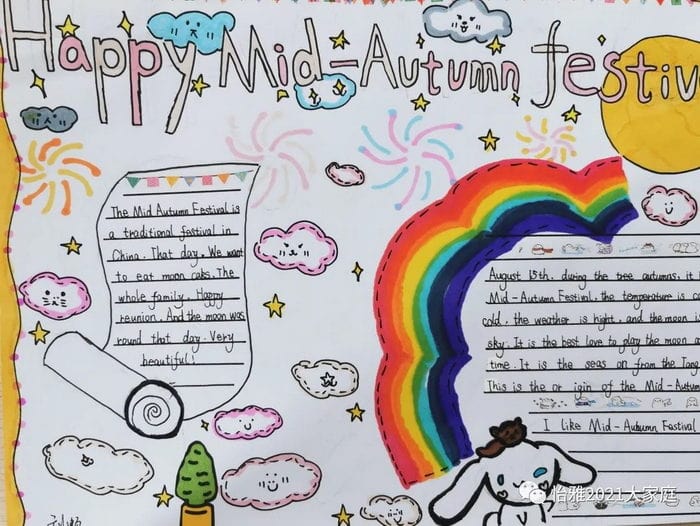 Happy Mid-Autumn festiv
The Mid Autumn Festival is
a traditional fastival in
China. That day. We want
to eat moon caks. The
whole family. Happy
reunion. And the moon was
round that day. Very
beautiful!
August 15th, during the tree autumns, it
Mid-Autumn Festival, the temperature is
cold, the weather is hight, and the moon
sky. It is the best love to play the moon
time. It is the seas on from the Tang
This is the or igin of the Mid-Autum
I like Mid-Autumn Festival
怡雅2021大家庭